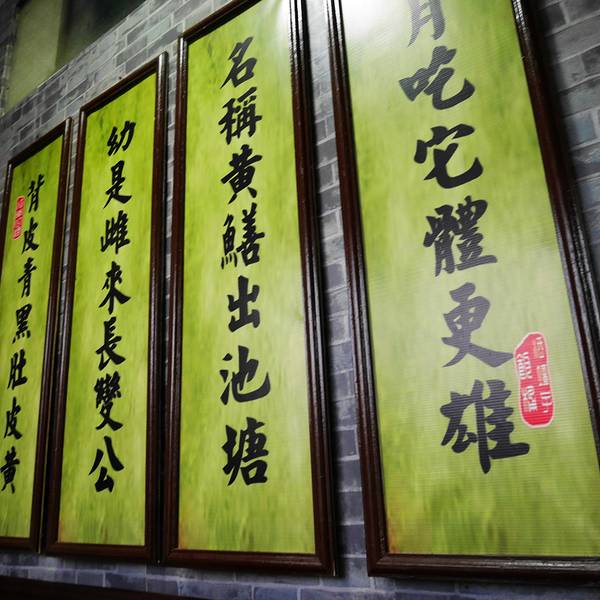 背皮青黑肚皮黃
幼是雌來長變公
名稱黃鱔出池塘
月吃它體更雄